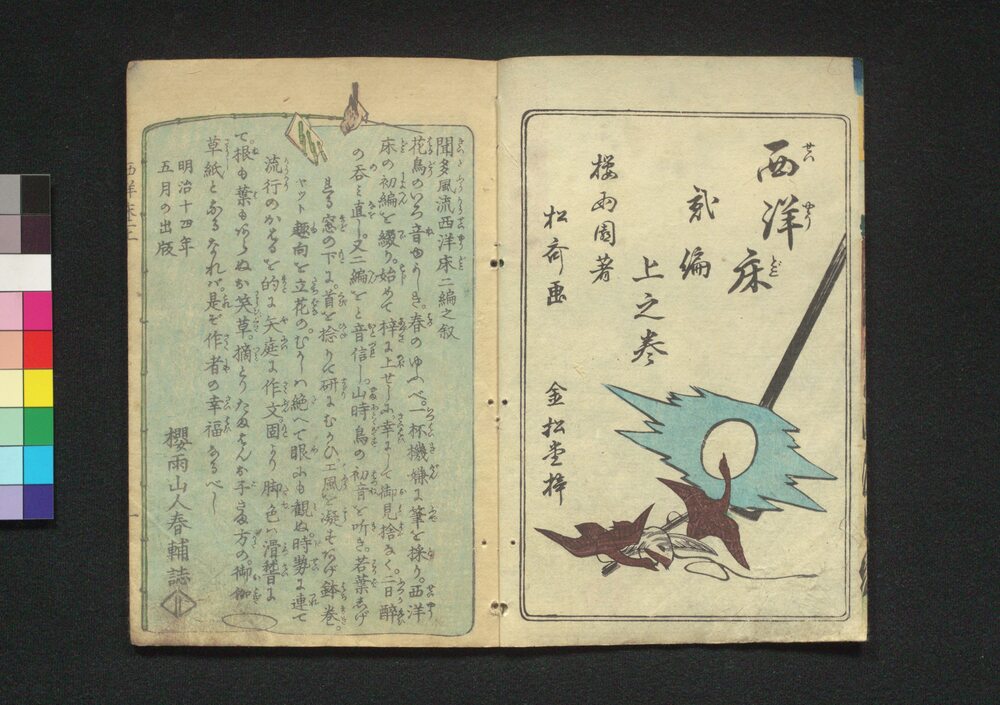 西洋床
弐編
上之巻
桜雨園著
松斎画
金松堂梓
聞多風流西洋床二編之叙
花鳥のいろ音ゆかしき。春のゆふべ。一杯機嫌に筆を採り。西洋
床の初編を綴り。始めて梓に上せしに。幸にして御見捨なく。二日酔
の呑ミ直し。又二編をと音信し。山時鳥の初音を听き。若葉しげ
れる窓の下に。首を捻りて研にむかひ。工風を凝すなげ鉢巻。
ヤット趣向を立花の。むかしハ絶へて眼にも観ぬ。時勢に連て
流行のかはるを的に矢庭に作文固より脚色ハ滑稽に
て根も葉もあらぬか笑草。摘とりたまはんか子さま方の。御伽
草紙ともなるなれバ。是ぞ作者の幸福なるべし
明治十四年
五月の出版
櫻雨山人春輔誌
西洋床二上